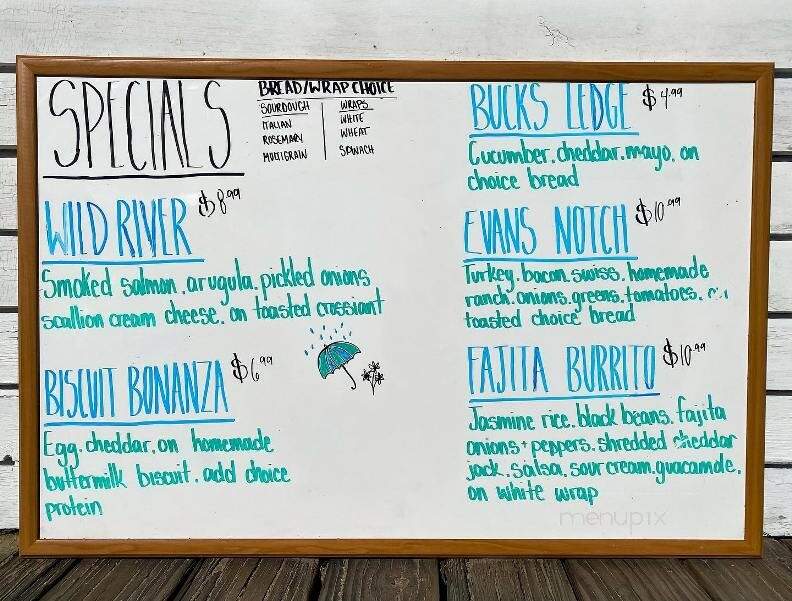 SPECIALS
BREAD/WRAP CHOICE
SOURDOUGH WRAPS
ITALIAN WHITE
ROSEMARY WHEAT
MULTIGRAIN SPINACH
WILD RIVER $8.99
Smoked salmon, arugula, pickled onions
scallion cream cheese, on toasted crossiant
BISCUIT BONANZA $6.99
Egg, cheddar, on homemade
buttermilk biscuit, add choice
protein
BUCKS LEDGE $4.99
Cucumber, cheddar, mayo, on
choice bread
EVANS NOTCH $10.99
Turkey, bacon, swiss, homemade
ranch, onions, greens, tomatoes,
toasted choice bread
FAJITA BURRITO $10.99
Jasmine rice, black beans, fajita
onions + peppers, shredded cheddar
jack, salsa, sour cream, guacamole,
on white wrap
menupix